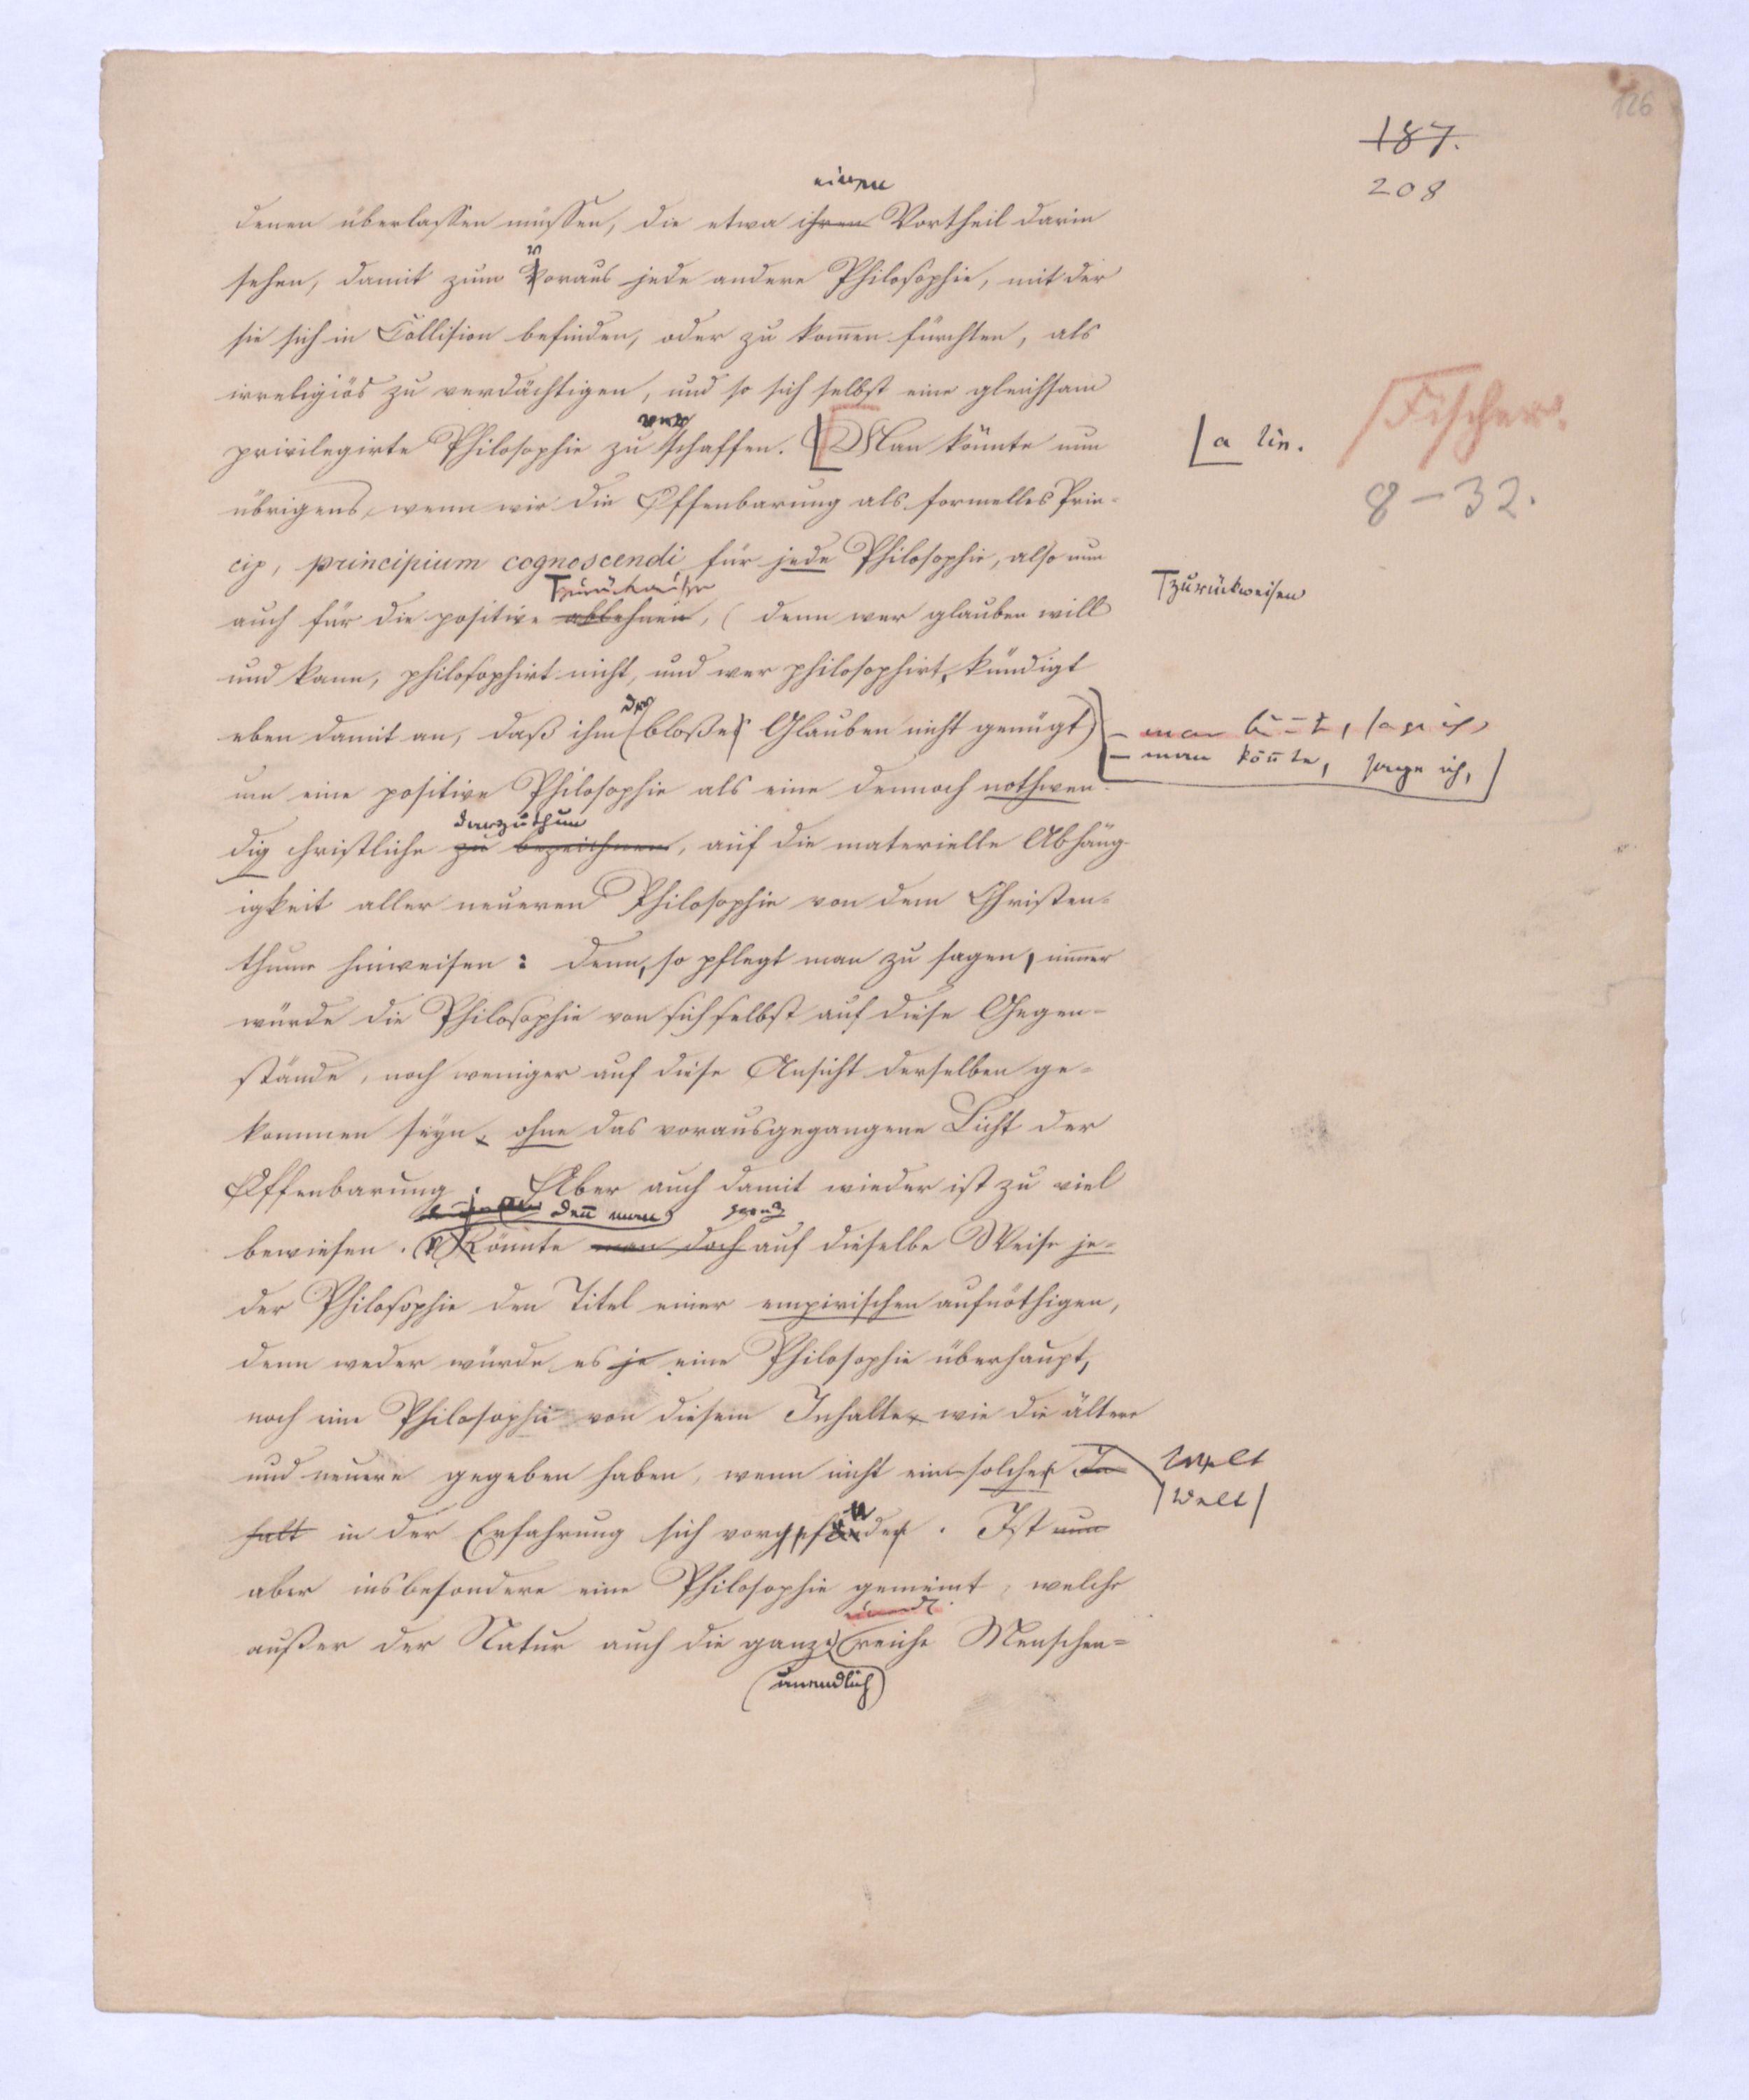 126
187.
208
einen
denen überlassen müssen, die etwa ihren Vortheil darin
sehen, damit zum Voraus jede andere Philosophie, mit der
sie sich in Collision befinden, oder zu kom̅en fürchten, als
irreligiös zu verdächtigen, und so sich selbst eine gleichsam
privilegirte Philosophie zu schaffen. Man könnte nun
a lin.
Fischer.
8-32.
übrigens, wenn wir die Offenbarung als formelles Prin-
cip, principium cognoscendi für jede Philosophie, also nun
zurückweisen
auch für die positive ablehnen, (denn wer glauben will
zurückweisen
und kann, philosophirt nicht, und wer philosophirt, kündigt
der
eben damit an, daß ihm bloßes Glauben nicht genügt)
– man kön̅te, sage ich,
– man kön̅te, sage ich,
um eine positive Philosophie als eine dennoch nothwen-
darzuthun
dig christliche zu bezeichnen, auf die materielle Abhäng-
igkeit aller neueren Philosophie von dem Christen-
thume hinweisen: denn, so pflegt man zu sagen, nim̅er
würde die Philosophie von sich selbst auf diese Gegen-
stände, noch weniger auf diese Ansicht derselben ge-
kommen seyn, ohne das vorausgegangene Licht der
Offenbarung. Aber auch damit wieder ist zu viel
den̅ man ganz
bewiesen. Könnte man doch auf dieselbe Weise je-
der Philosophie den Titel einer empirischen aufnöthigen,
denn weder würde es je eine Philosophie überhaupt,
noch eine Philosophie von diesem Inhalte, wie die ältere
und neuere gegeben haben, wenn nicht eine solche In
Welt
Welt
halt in der Erfahrung sich vorfände. Ist nun
aber insbesondere eine Philosophie gemeint, welche
außer der Natur auch die ganze reiche Menschen-
unendlich